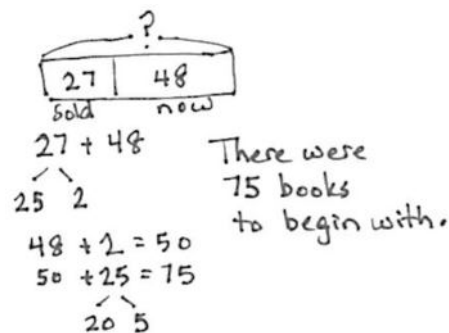 ?
27 48
sold now
27 + 48
25 2
48 + 2 = 50
50 + 25 = 75
20 5
There were
75 books
to begin with.